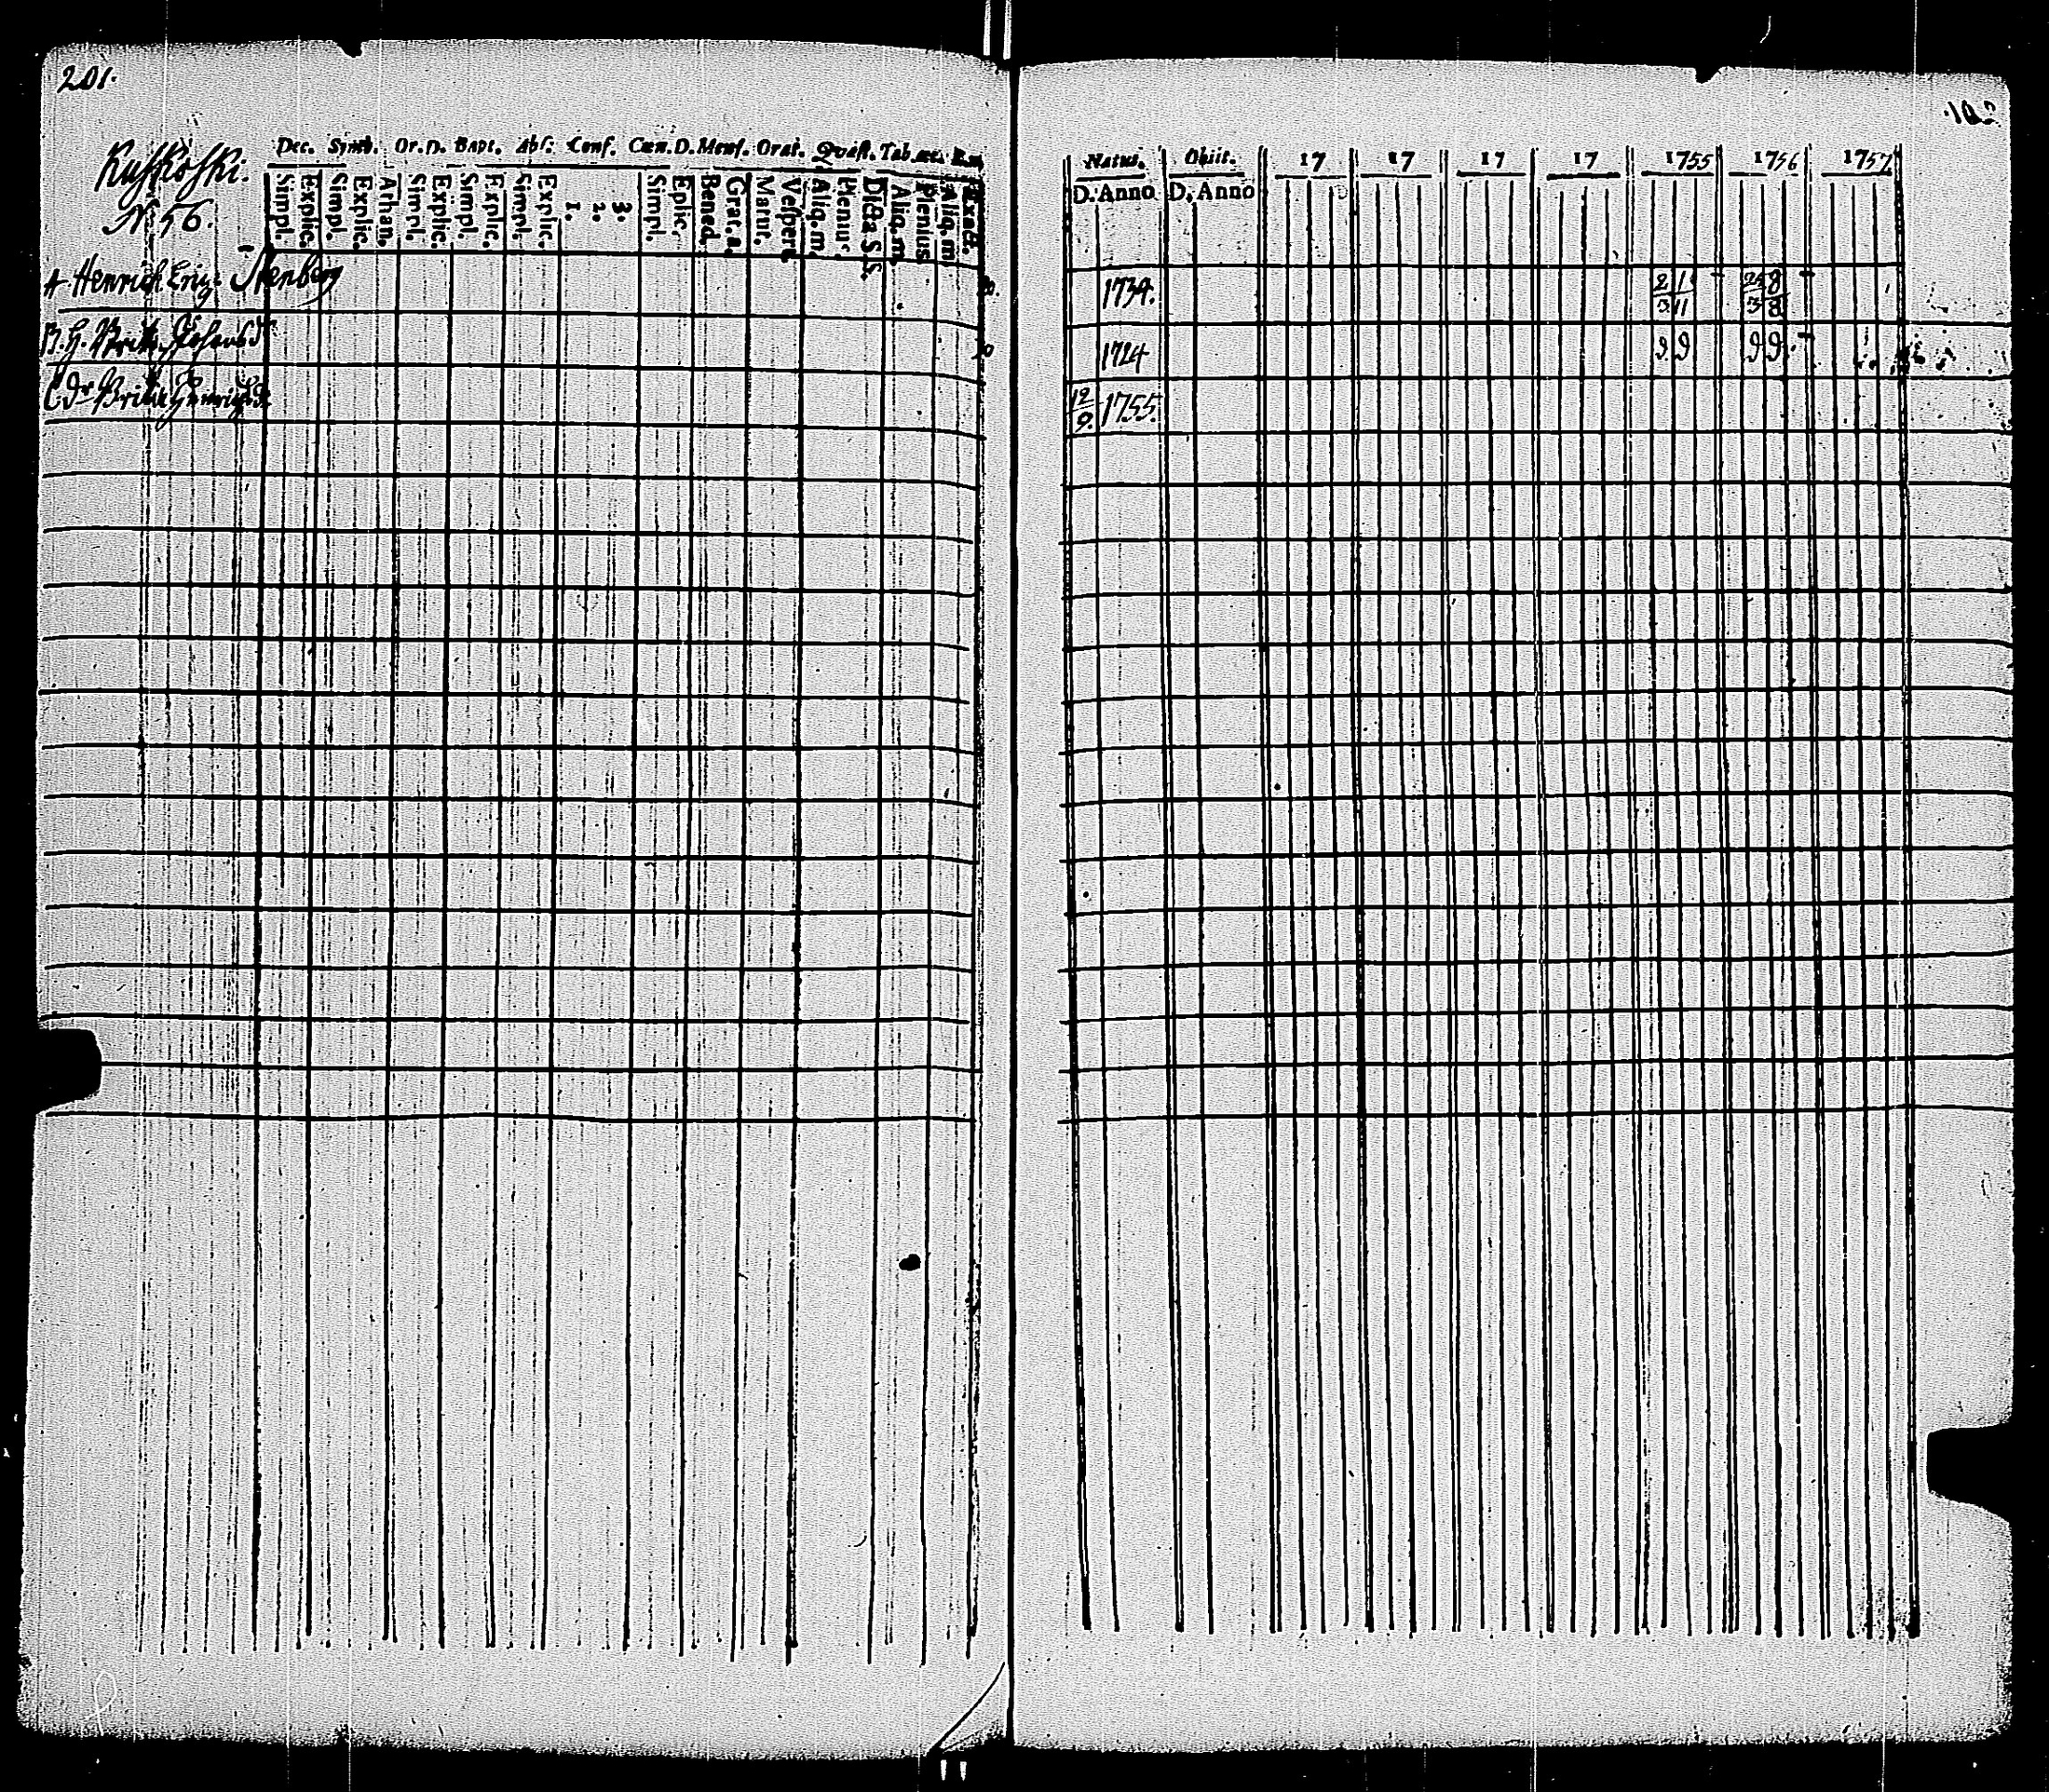 201.
Kuskoski.
N 56.
Dec. Symb. Or. D. Bapt. Abs: Conf. Cœn. D. Mens. Orat. Quæst. Tab. œc.
Simpl. Explic. Simpl. Explic. Athan. Simpl. Explic. Simpl. Explic. Simpl. Explic. 1. 2. 3. Simpl. Eplic. Bened. Grat. a. Matut. Vespert. Aliq. m. Plenur. Dicta S. S. Aliq. m. Plenius Aliq. m Exact.
Natus. Obiit. 17 17 17 17 1755 1756 1757
D. Anno D. Anno
A Henrich Stenberg 1734. 21 28
311 38
B. H. Brita 1724 99 99.
C Dr Brita Henrichsdr 12/9. 1755.